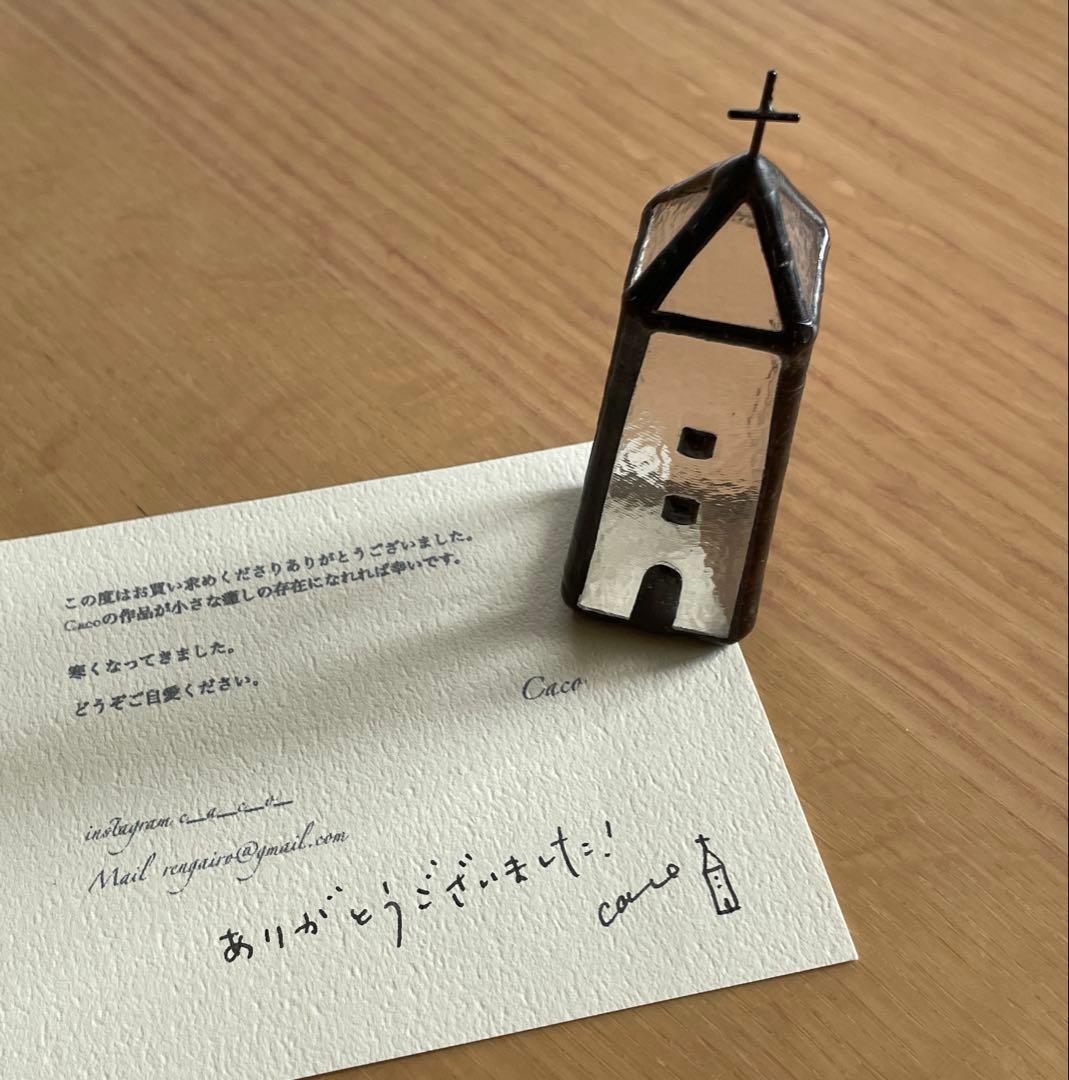 この度はお買い求めくださりありがとうございました。
Cacoの作品が小さな癒しの存在になれれば幸いです。
寒くなってきました。
どうぞご自愛ください。
Caco
instagram c__a__c__o__
Mail rengairo@gmail.com
ありがとうございました!
caco